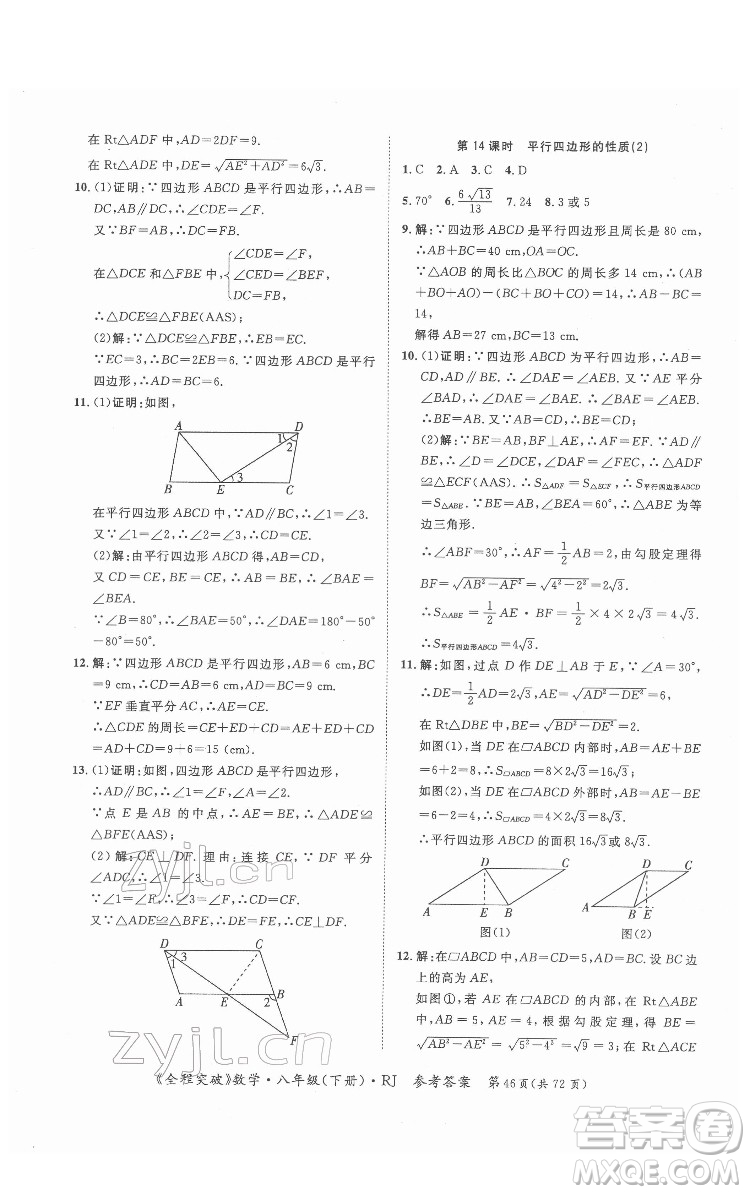 在 Rt△ADF 中,AD=2DF=9.
在 Rt△ADE 中,DE=√(AE²+AD²)=6√3.
10. (1)证明:∵四边形 ABCD 是平行四边形,∴AB=
DC,AB∥DC,∴∠CDE=∠F.
又∵BF=AB,∴DC=FB.
在△DCE 和△FBE 中,{∠CDE=∠F,
∠CED=∠BEF,
DC=FB,
∴△DCE≌△FBE(AAS);
(2)解:∵△DCE≌△FBE,∴EB=EC.
∵EC=3,∴BC=2EB=6. ∵四边形 ABCD 是平行
四边形,∴AD=BC,∴AD=6.
11. (1)证明:如图,
A D
1 2
3
B E C
在平行四边形 ABCD 中,∵AD∥BC,∴∠1=∠3.
又∵∠1=∠2,∴∠2=∠3,∴CD=CE.
(2)解:由平行四边形 ABCD 得,AB=CD,AD∥BC
又 CD=CE,BE=CE,∴AB=BE,∴∠BAE=
∠BEA.
∵∠B=80°,∴∠BAE=50°,∴∠DAE=180°-50°
-80°=50°.
12. 解:∵四边形 ABCD 是平行四边形,∴AD=BC
=9 cm,CD=AB=6 cm,
∵EF 垂直平分 AC,∴AE=CE,
∴△CDE 的周长=CD+CE+DE=CD+AE+DE
=CD+AD=9+6=15 (cm).
13. (1)证明:如图,四边形 ABCD 是平行四边形,
∴AD∥BC,∴∠1=∠F,
∵点 E 是 AB 的中点,∴AE=BE,∴△ADE≌
△BFE(AAS);
(2)解:CE⊥DF. 理由:连接 CE,∵DF 平分
∠ADC,∴∠1=∠3,∴∠3=∠F,∴CD=CF.
又∵△ADE≌△BFE,∴DE=FE,∴CE⊥DF.
D C
1 3
A E 2 B
F
第 14 课时 平行四边形的性质(2)
1. C 2. A 3. C 4. D
5. 70° 6. 6√13/13 7. 24 8. 3 或 5
9. 解:∵四边形 ABCD 是平行四边形且周长是 80 cm,
∴AB+BC=40 cm,OA=OC.
∵△AOB 的周长比△BOC 的周长多 14 cm,∴(AB
+BO+AO)-(BC+BO+OC)=14,∴AB-BC=
14,
解得 AB=27 cm,BC=13 cm.
10. (1)证明:∵四边形 ABCD 为平行四边形,∴AB=
CD,AD∥BE,∴∠DAE=∠AEB. 又∵AE 平分
∠BAD,∴∠BAE=∠DAE,∴∠BAE=∠AEB,
∴BE=AB,∴BE=CD.
(2)解:∵BE=AB,BF⊥AE,∴AF=EF. 又∵
∠DAF=∠CEF,∠AFD=∠EFC,∴△ADF≌
△ECF(AAS). ∴S△ADF=S△ECF,∴S平行四边形ABCD
=S△ABE. ∵BE=AB,∠BEA=60°,∴△ABE 为等
边三角形.
∴∠ABF=30°,∴AF=1/2AB=2,由勾股定理得
BF=√(AB²-AF²)=√(4²-2²)=2√3.
∴S△ABE=1/2AE·BF=1/2×4×2√3=4√3,
∴S平行四边形ABCD=4√3.
11. 解:如图,过点 D 作 DE⊥AB 于 E,∵∠A=30°,
∴DE=1/2AD=2√3,AE=√(AD²-DE²)=6,
在 Rt△DBE 中,BE=√(BD²-DE²)=2.
如图(1),当 DE 在□ABCD 内部时,AB=AE+BE
=6+2=8,∴S□ABCD=8×2√3=16√3.
如图(2),当 DE 在□ABCD 外部时,AB=AE-BE
=6-2=4,∴S□ABCD=4×2√3=8√3.
∴平行四边形 ABCD 的面积 16√3或 8√3.
D C
A E B
图(1)
D C
A B E
图(2)
12. 解:在□ABCD 中,AB=CD=5,设 BC 边
上的高为 AE,
如图①,若 AE 在□ABCD 的内部,在 Rt△ABE
中,AB=5,AE=4,根据勾股定理,得 BE
=√(AB²-AE²)=√(5²-4²)=3;
《全程突破》数学·八年级(下册)·RJ 参考答案 第 46 页(共 72 页)
zyjl.cn
zyjl.cn
答案圈
MXQE.COM